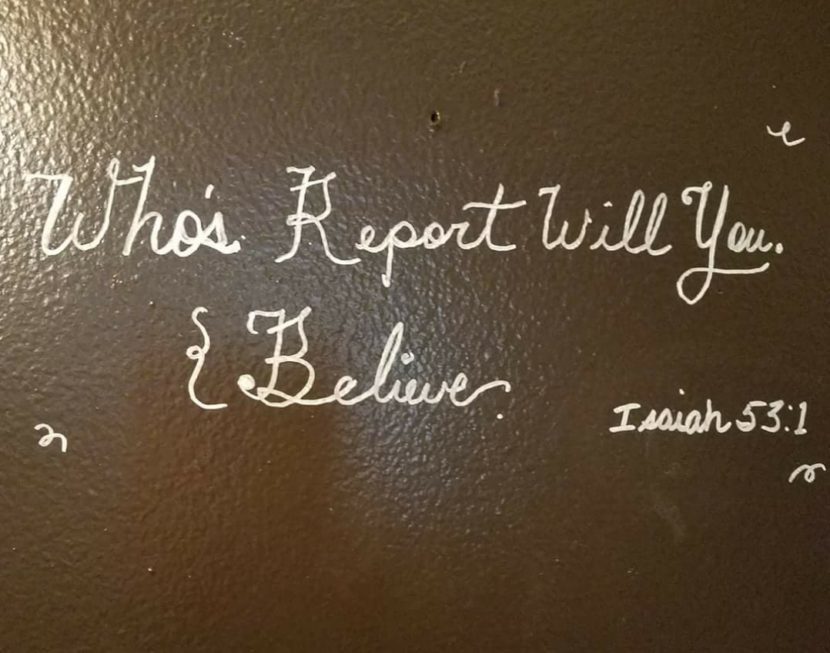 Who's Report Will You.
{ Believe.
Isaiah 53:1